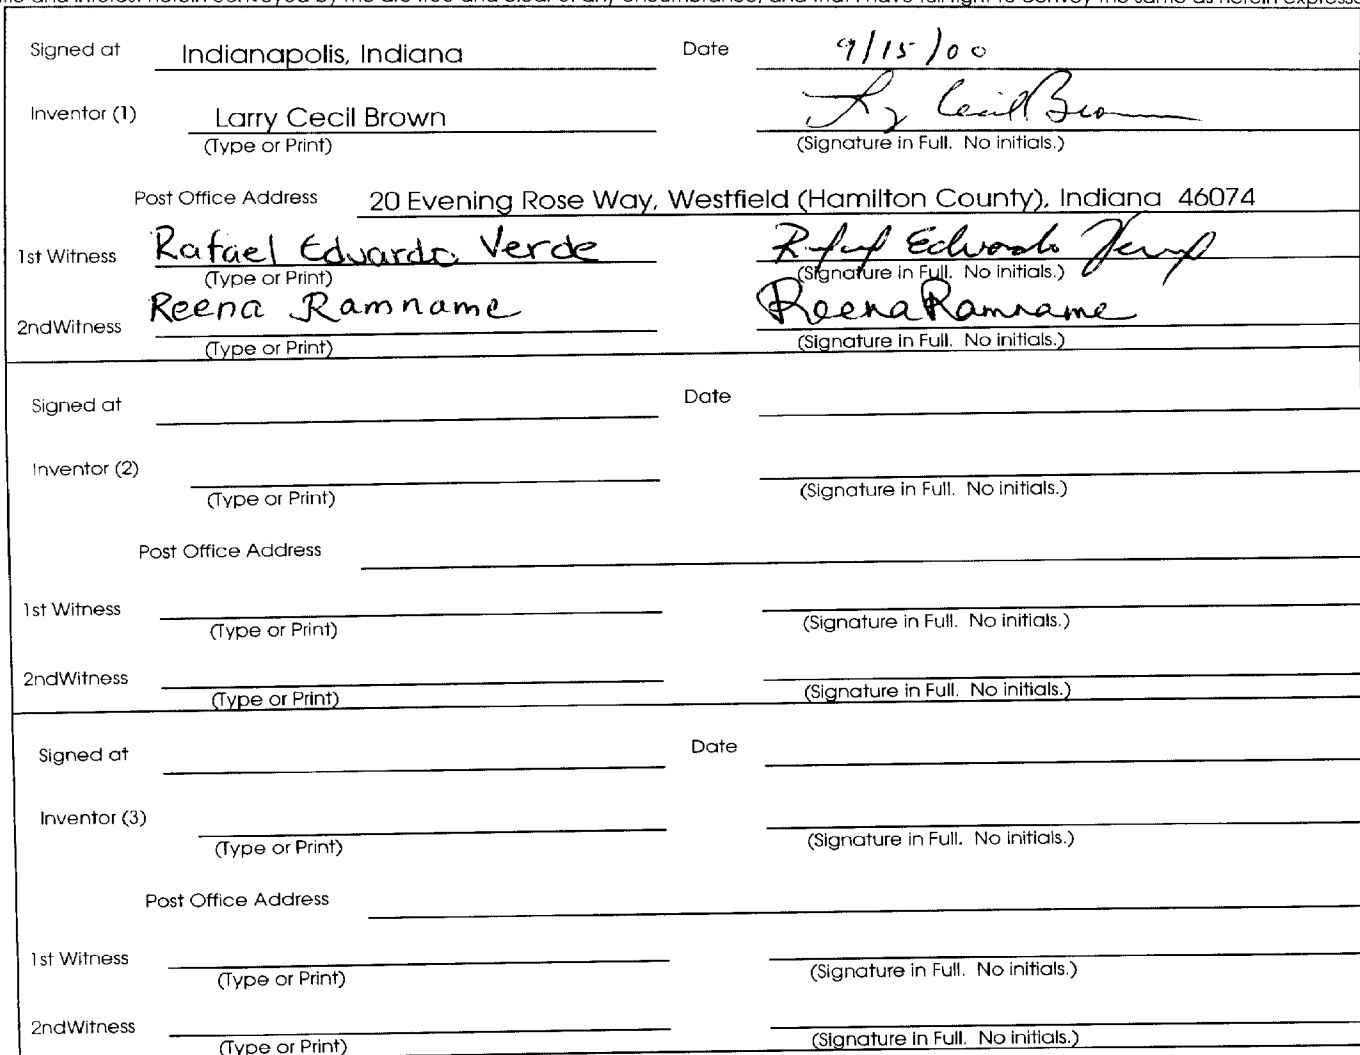 Signed at Indianapolis, Indiana Date 9/15/00
Inventor (1) Larry Cecil Brown Cecil Brown
(Type or Print) (Signature in Full. No initials.)
Post Office Address 20 Evening Rose Way, Westfield (Hamilton County), Indiana 46074
1st Witness Rafael Eduardo Verde Eduardo
(Type or Print) (Signature in Full. No initials.)
2ndWitness Reena Ramname Reena Ramname
(Type or Print) (Signature in Full. No initials.)
Signed at Date
Inventor (2)
(Type or Print) (Signature in Full. No initials.)
Post Office Address
1st Witness
(Type or Print) (Signature in Full. No initials.)
2ndWitness
(Type or Print) (Signature in Full. No initials.)
Signed at Date
Inventor (3)
(Type or Print) (Signature in Full. No initials.)
Post Office Address
1st Witness
(Type or Print) (Signature in Full. No initials.)
2ndWitness
(Type or Print) (Signature in Full. No initials.)